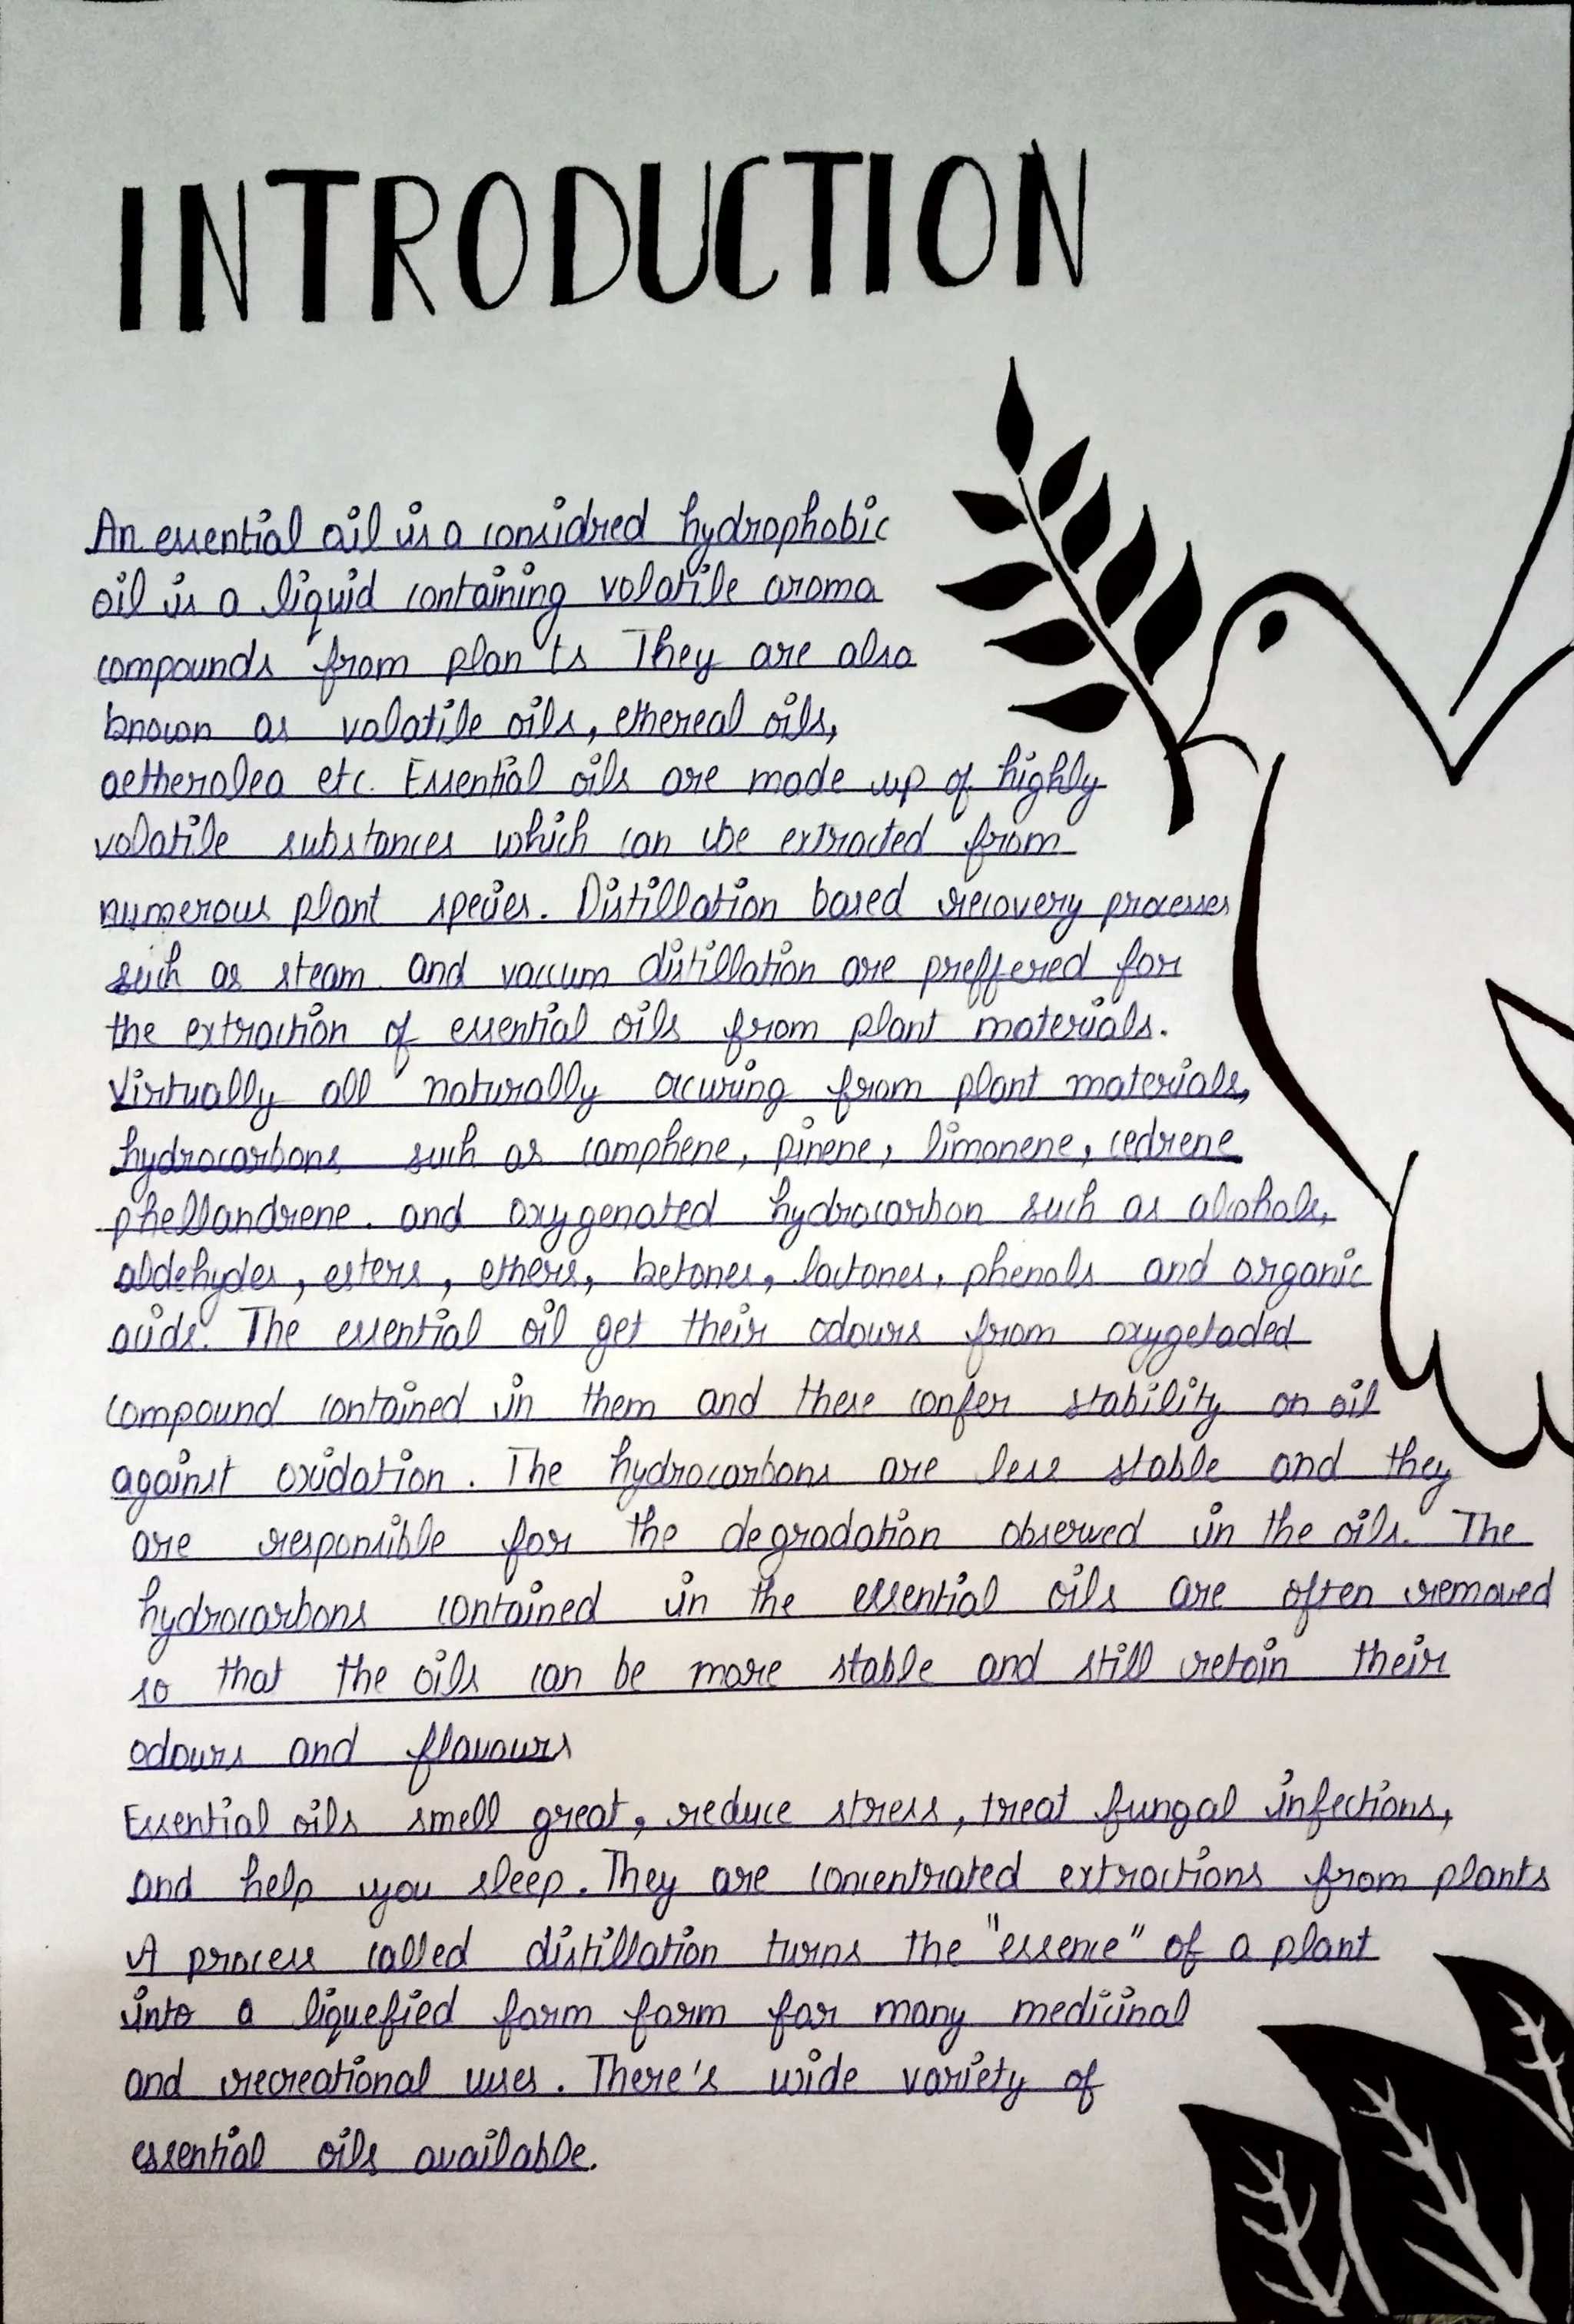 INTRODUCTION
An essential oil is a considred hydrophobic
oil is a liquid containing volatile aroma
compounds from plan ts They are also
known as volatile oils, ethereal oils,
aetherolea etc. Essential oils are made up of highly
volatile substances which can be extracted from
numerous plant species. Distillation based recovery processes
such as steam and vaccum distillation are preffered for
the extraction of essential oils from plant materials.
Virtually all naturally occuring from plant materials,
hydrocarbons such as camphene, pinene, limonene, cedrene
phellandrene. and oxygenated hydrocarbon such as alcohols,
aldehydes, esters, ethers, ketones, lactones, phenols and organic
acids. The essential oil get their odours from oxygetaded
compound contained in them and these confer stability on oil
against oxidation. The hydrocarbons are less stable and they
are responsible for the degradation observed in the oils. The
hydrocarbons contained in the essential oils are often removed
so that the oils can be more stable and still retain their
odours and flavours
Essential oils smell great, reduce stress, treat fungal infections,
and help you sleep. They are concentrated extractions from plants
A process called distillation turns the "essence" of a plant
into a liquefied form form for many medicinal
and recreational uses. There's wide variety of
essential oils available.